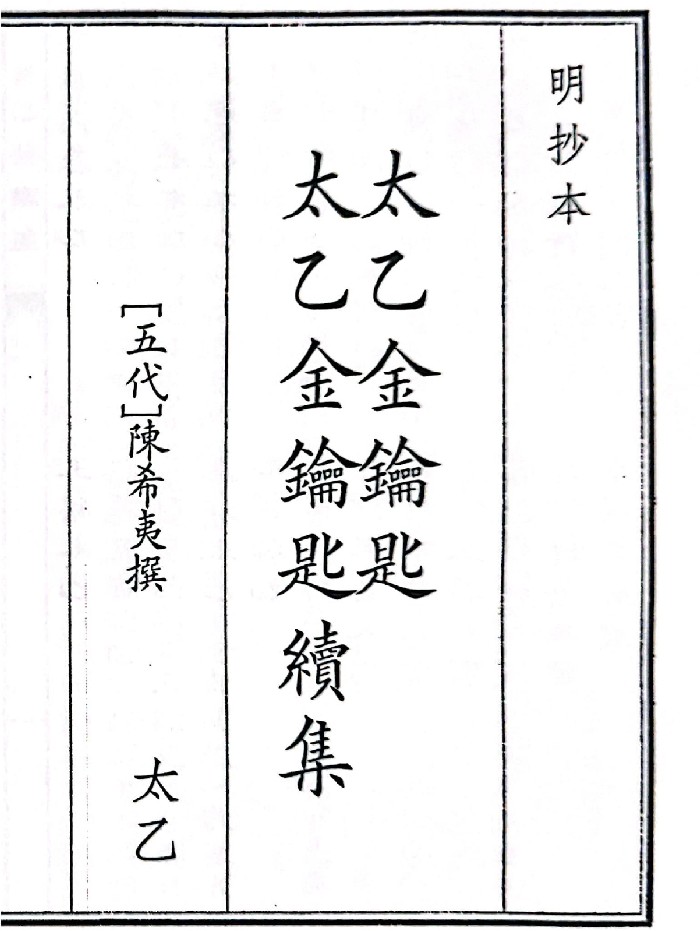 明抄本
太乙金鑰匙
太乙金鑰匙續集
[五代]陳希夷撰
太乙